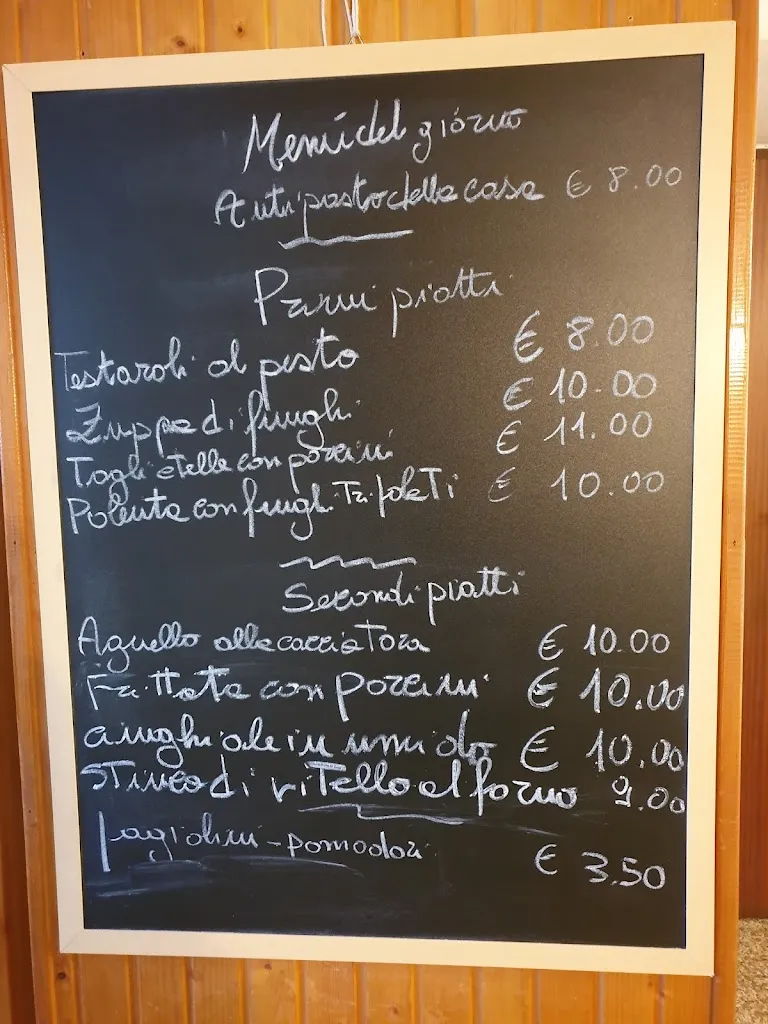 Menù del giorno
Antipasto della casa € 8.00
Primi piatti
Testaroli al pesto € 8.00
Zuppa di funghi € 10.00
Tagliatelle con porcini € 11.00
Polenta con funghi Trifolati € 10.00
Secondi piatti
Agnello alla cacciatora € 10.00
Frittata con porcini € 10.00
cinghiale in umido € 10.00
STinco di viTello al forno 9.00
fagiolini - pomodori € 3.50